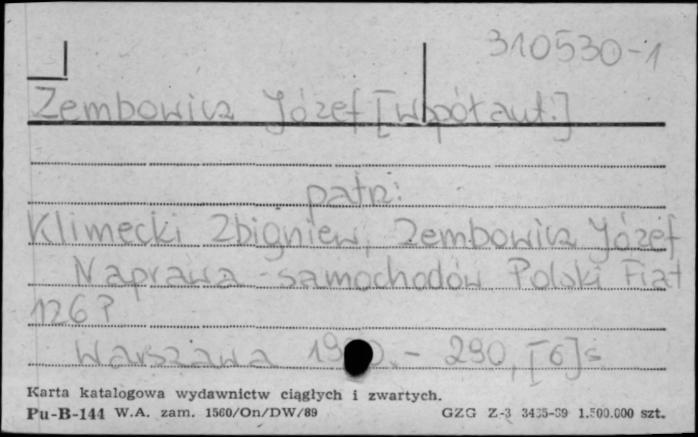 310530-1
Zembowicz Józef [współaut.]
patrz:
Klimecki Zbigniew, Zembowicz Józef
Naprawa samochodów Polski Fiat
126 P
Warszawa - 290, [6] s
Karta katalogowa wydawnictw ciągłych i zwartych.
Pu-B-144 W.A. zam. 1560/On/DW/89 GZG Z-3 3435-89 1.500.000 szt.